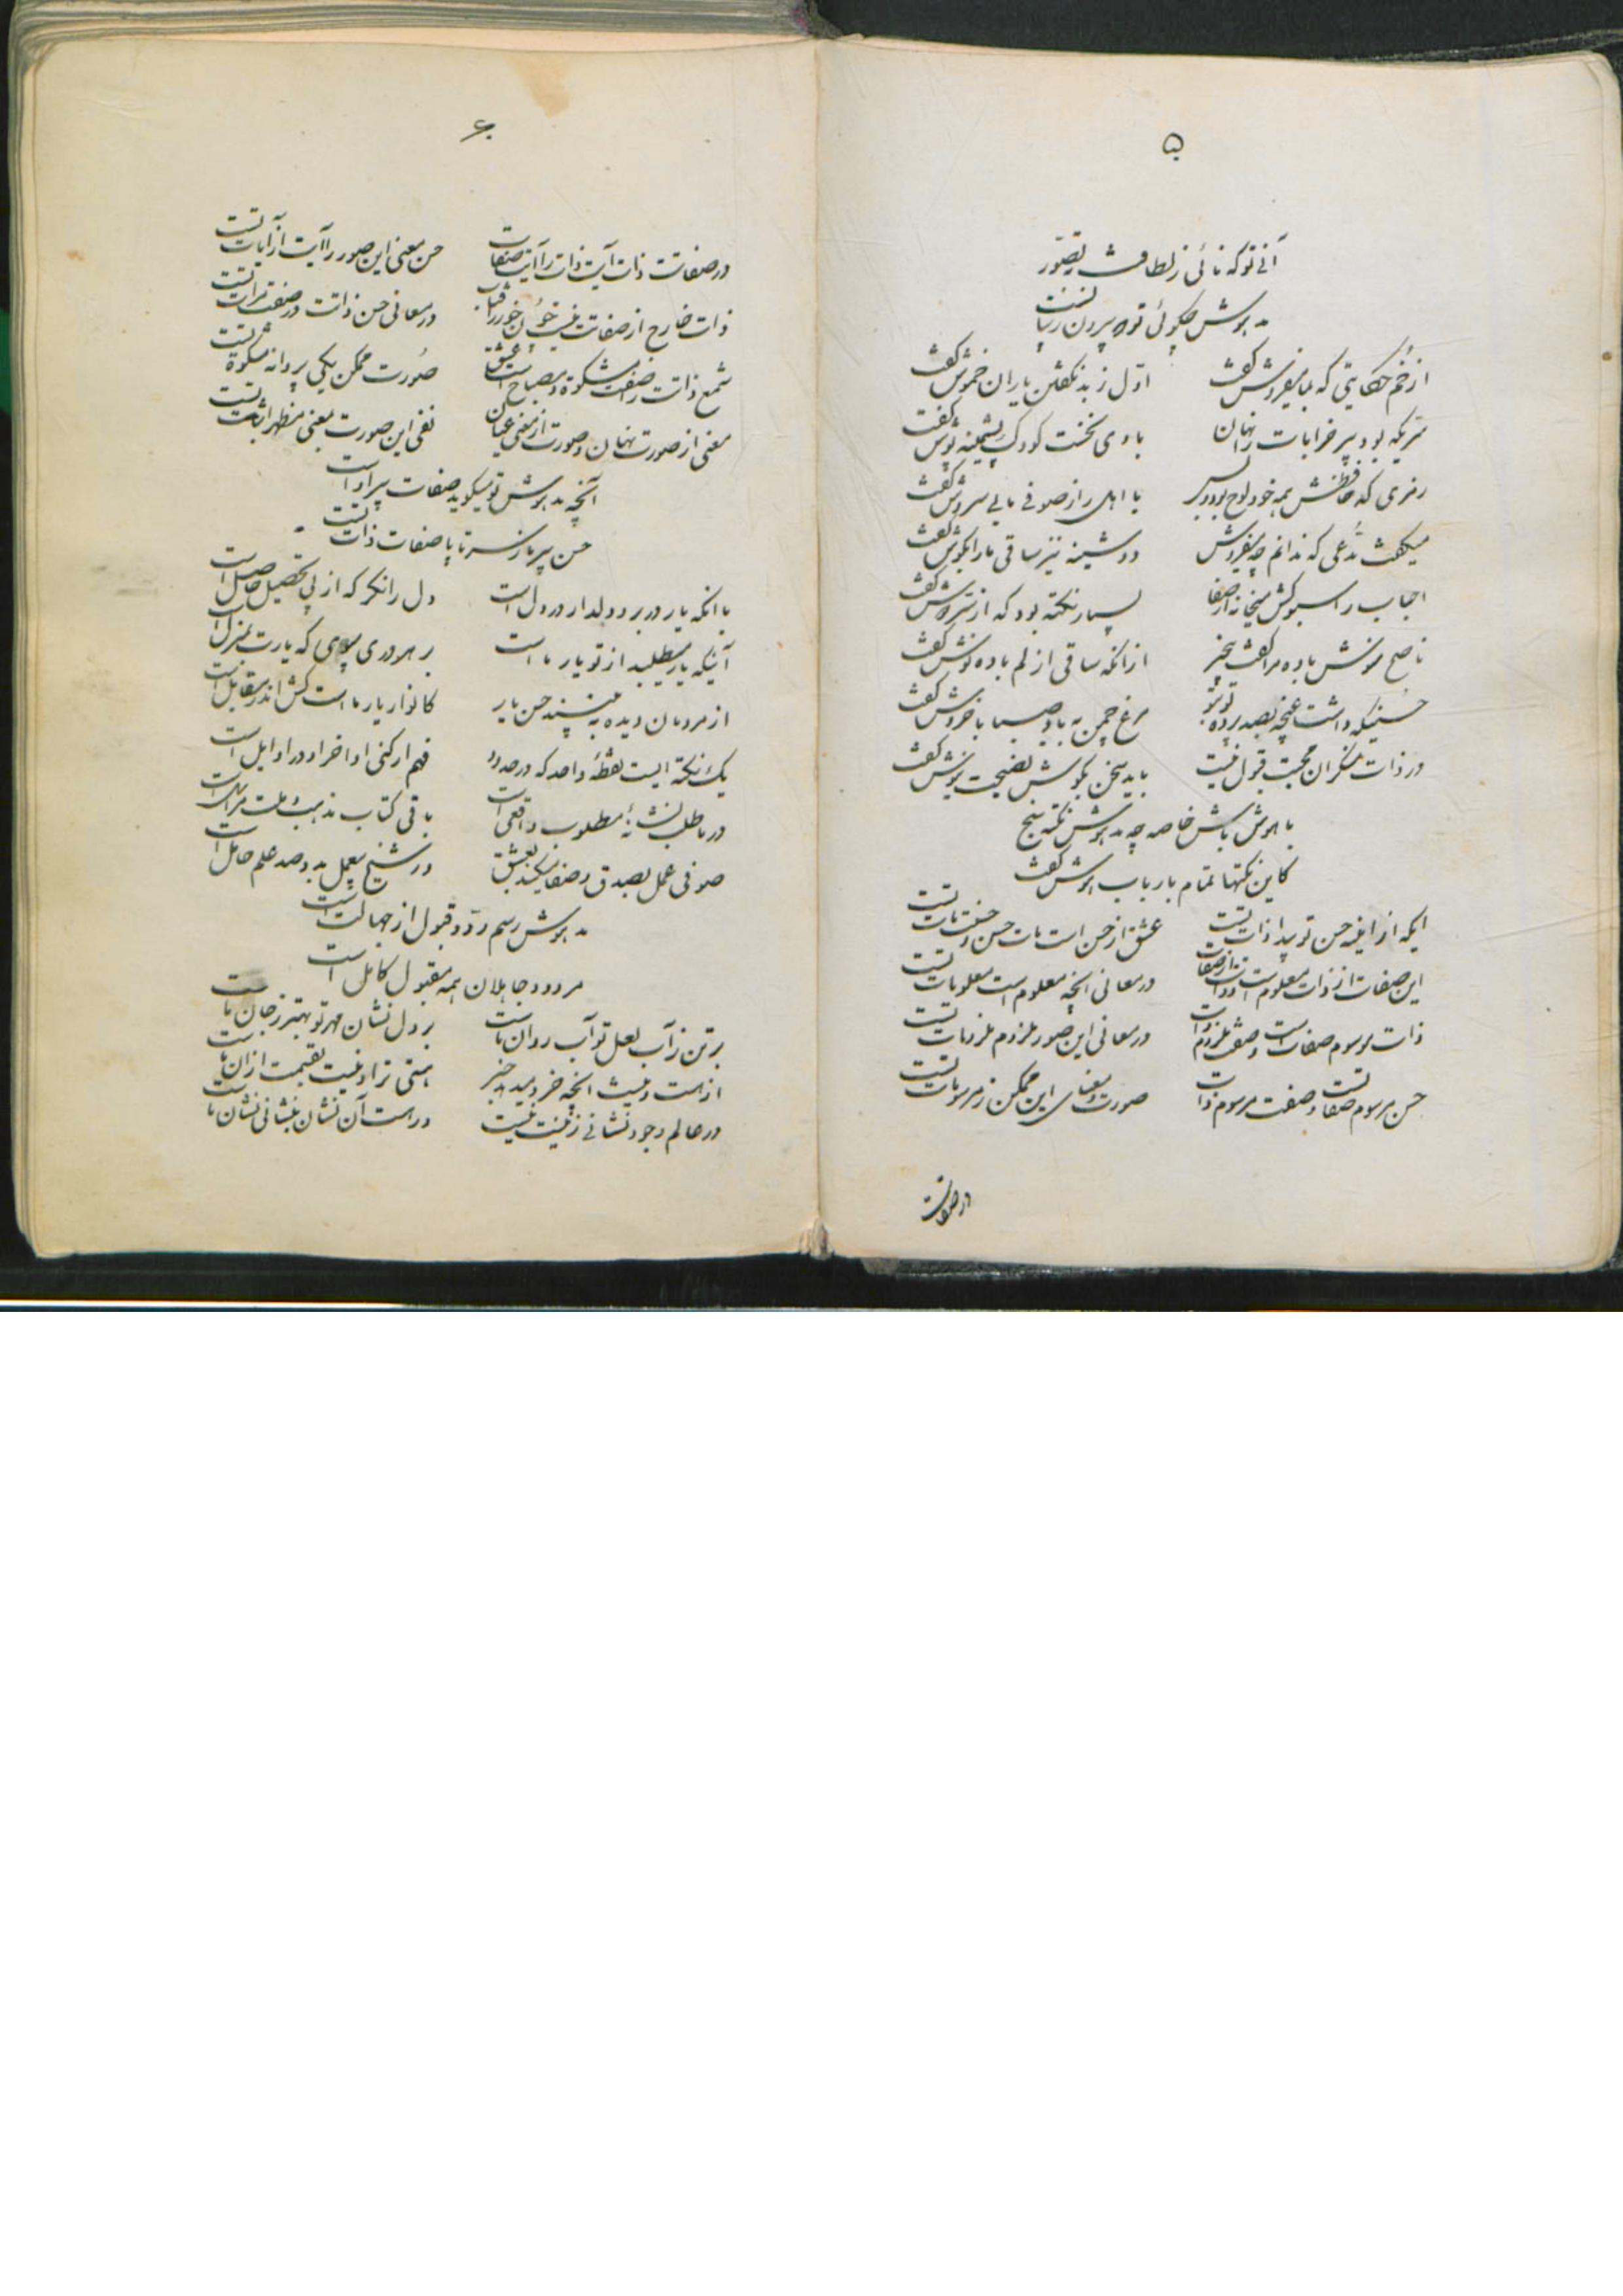 ۵
آنی تو که نائی ز لطافت بتصور
مدهوش چگوئی تو که بیرون ز بیانست
از خُم حکایتی که بما میفروش گفت    اوّل ز بد نگفتن یاران خموش گفت
سریکه بود پیر خرابات را نهان    با وی نخست کودک پشمینه پوش گفت
رمزی که حافظش همه خود لوح بود و بس    با اهل راز صوفی ما بی سروش گفت
میگفت مدّعی که ندانم چه میفروش    دوشینه نیز ساقی ما را بگوش گفت
احباب را سبوکش میخانه از صفا    بسیار نکته بود که از سر دوش گفت
ناصح منوش باده مرا گفت بیخبر    زانکه ساقی از لم باده نوش گفت
حسنیکه داشت غنچه بصد پرده تو بتو    مرغ چمن به باد صبا با خروش گفت
در ذات منکران محبت قبول نیست    باید سخن بگوش نصیحت نیوش گفت
با هوش باش خاصه چه مدهوش نکته سنج
کاین نکتها تمام بارباب هوش گفت
ایکه از آینه حسن تو پیدا ذات تست    عشق از حسن است مات حسن و صفت مات تست
این صفات از ذات معلوم است و ذات از صفات    در معانی انچه معلوم است معلومات تست
ذات موسوم صفات است و صف ملزوم ذات    در معانی این صور ملزوم ملزومات تست
حسن مرسوم صفات و صفت مرسوم ذات    صورت و معنای این ممکن ز مرسومات تست
در صفاتت
۶
در صفاتت ذات آیت ذات را آیت صفات    حسن معنی این صور را آیت از آیات تست
ذات خارج از صفاتت نیست چون خور ز آفتاب    در معانی حسن ذاتت در صفت مرات تست
شمع ذاتت را صفت مشکوة و مصباح است عشق    صورت ممکن یکی پروانه مشکوة تست
معنی از صورت نهان و صورت از معنی عیان    نفی این صورت بمعنی مظهر اثبات تست
آنچه مدهوش تو میگوید صفات پیر اوست
حسن پیر ما ز سر تا پا صفات ذات تست
با آنکه یار در بر و دلدار در دل است    دل را نگر که از پی تحصیل حاصل است
آنیکه یار میطلبد از تو یار ما است    رهرو روی که یارت بمنزل است
از مردمان دیده ببینید حسن یار    کانوار یار ما است کش اندر مقابل است
یک نکته ایست نقطهٔ واحد که در حدود    فهم ار کنی اواخر او در اوایل است
در ما طلب نشانهٔ مطلوب واقعی است    باقی کتاب مذهب و ملت
صوفی عمل بصدق و صفا میکند بعشق    در شیخ بعمل بدو صد علم حامل است
مدهوش رسم ردّ و قبول از جهالت است
مردود جاهلان همه مقبول کامل است
بر تن ز آب لعل تو آب روان ماست    بر دل نشان مهر تو بهتر ز جان ماست
از هست و نیست انچه خرد میدهد خبر    هستی تراد و نیست بقیمت از ان ماست
در عالم وجود نشانی ز نیست نیست    در هست آن نشان بنشانی نشان ماست